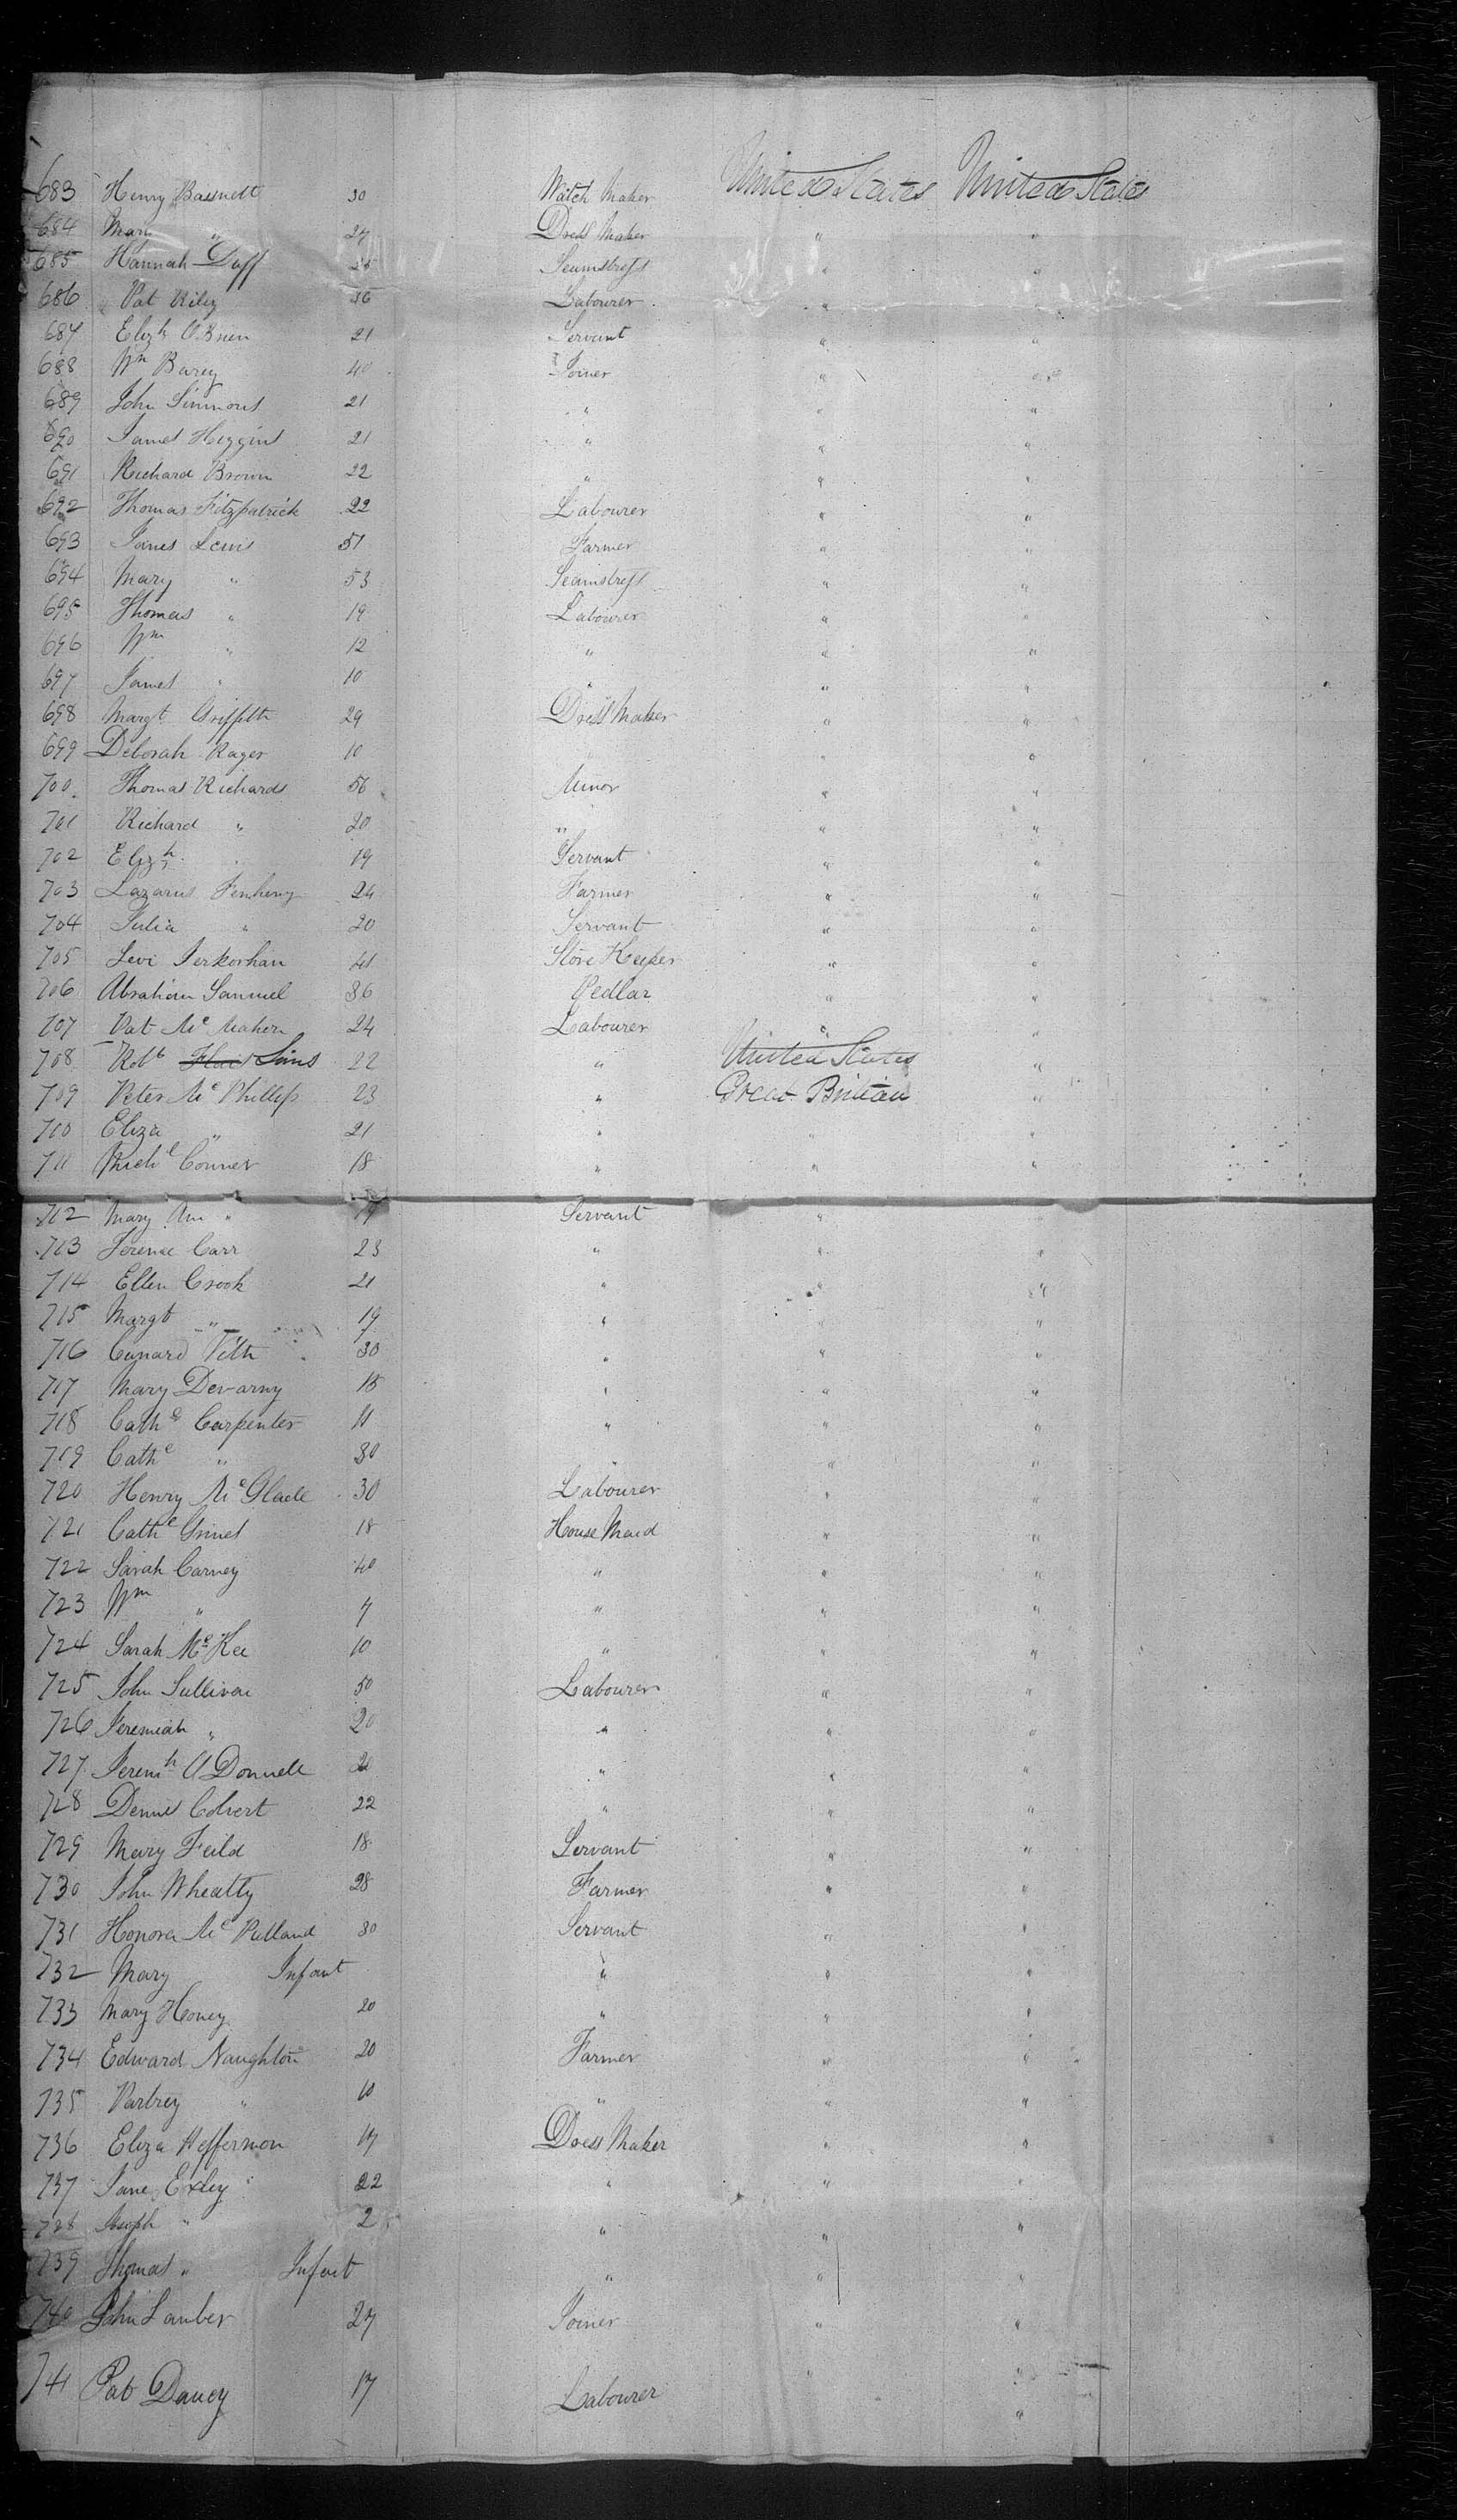 683 Henry Bassnett 30 Watch Maker United States United States
684 Mary " 27 Dress Maker " "
685 Hannah Duff 25 Seumstress " "
686 Pat Riley 36 Labourer " "
687 Elizh OBrien 21 Servant " "
688 Wm Barey 40 Joiner " "
689 John Simmons 21 " " "
690 James Higgins 21 " " "
691 Richard Brown 22 " " "
692 Thomas Fitzpatrick 22 Labourer " "
693 James Lewis 51 Farmer " "
694 Mary " 53 Seamstress " "
695 Thomas " 19 Labourer " "
696 Wm " 12 " " "
697 James " 10 " " "
698 Margt Griffith 29 Dress Maker " "
699 Deborah Rager 10 " " "
700 Thomas Richards 56 Minor " "
701 Richard " 20 " " "
702 Elizh " 19 Servant " "
703 Lazarus 24 Farmer " "
704 Julia " 20 Servant " "
705 Levi 41 Store Keeper " "
706 Abraham Samuel 36 Pedlar " "
707 Pat Mc Mahon 24 Labourer " "
708 Robt Sims 22 " United States "
709 Peter Mc Phillips 23 " Great Britian "
710 Eliza " 21 " " "
711 Conner 18 " " "
712 Mary Ann " 17 Servant " "
713 Terence Carr 23 " " "
714 Ellen Crook 21 " " "
715 Margt " 19 " " "
716 Cunard 30 " " "
717 Mary Devarny 15 " " "
718 Cathe Carpenter 11 " " "
719 Cathe " 30 " " "
720 Henry Mc Glade 30 Labourer " "
721 Cathe Grimes 18 House Maid " "
722 Sarah Carney 40 " " "
723 Wm " 7 " " "
724 Sarah McKee 10 " " "
725 John Sullivan 50 Labourer " "
726 Jeremiah " 20 " " "
727 Jeremh ODonnell 20 " " "
728 Dennis Colvert 22 " " "
729 Mary Feild 18 Servant " "
730 John Wheatty 28 Farmer " "
731 Honora Mc Partland 30 Servant " "
732 Mary Infant " " "
733 Mary Honey 20 " " "
734 Edward Naughton 20 Farmer " "
735 " 10 " " "
736 Eliza Heffernon 17 Dress Maker " "
737 Jane Exley 22 " " "
738 Joseph " 2 " " "
739 Thomas " Infant " " "
740 John Lamber 27 Joiner " "
741 Pat Dancy 17 Labourer " "